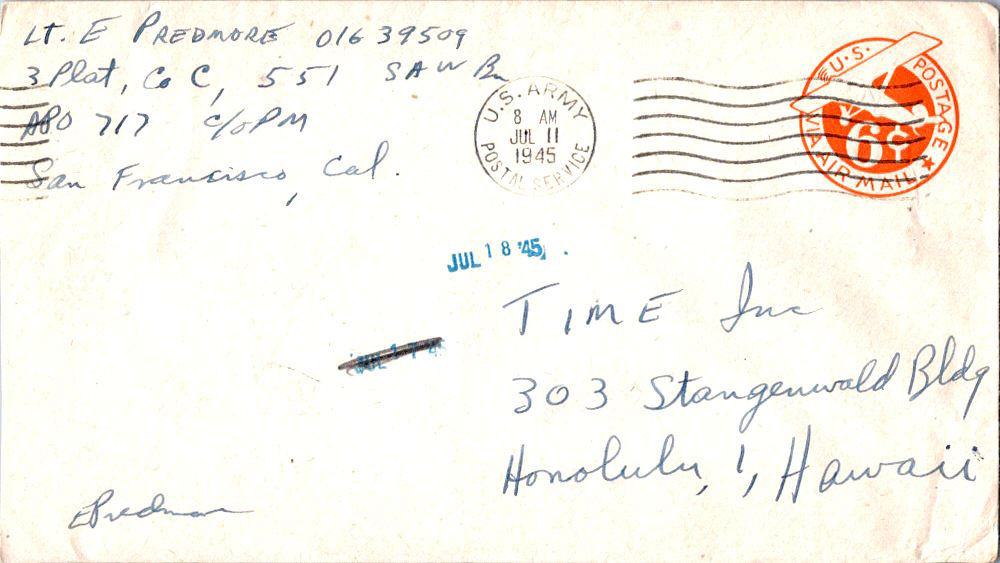 Lt. E PREDMORE 01639509
3 Plat, Co C, 551 SAW Bn
APO 717 c/o PM
San Francisco, Cal.
U.S. ARMY
8 AM
JUL 11
1945
POSTAL SERVICE
U.S. POSTAGE
6¢
VIA AIR MAIL
JUL 18 '45
TIME Inc
JUL 17 4
303 Stangenwald Bldg
Honolulu, 1, Hawaii
EPredmore